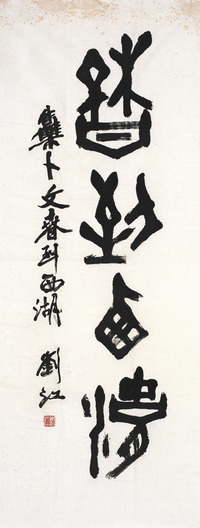 春到西湖
集卜文春到西湖 劉江